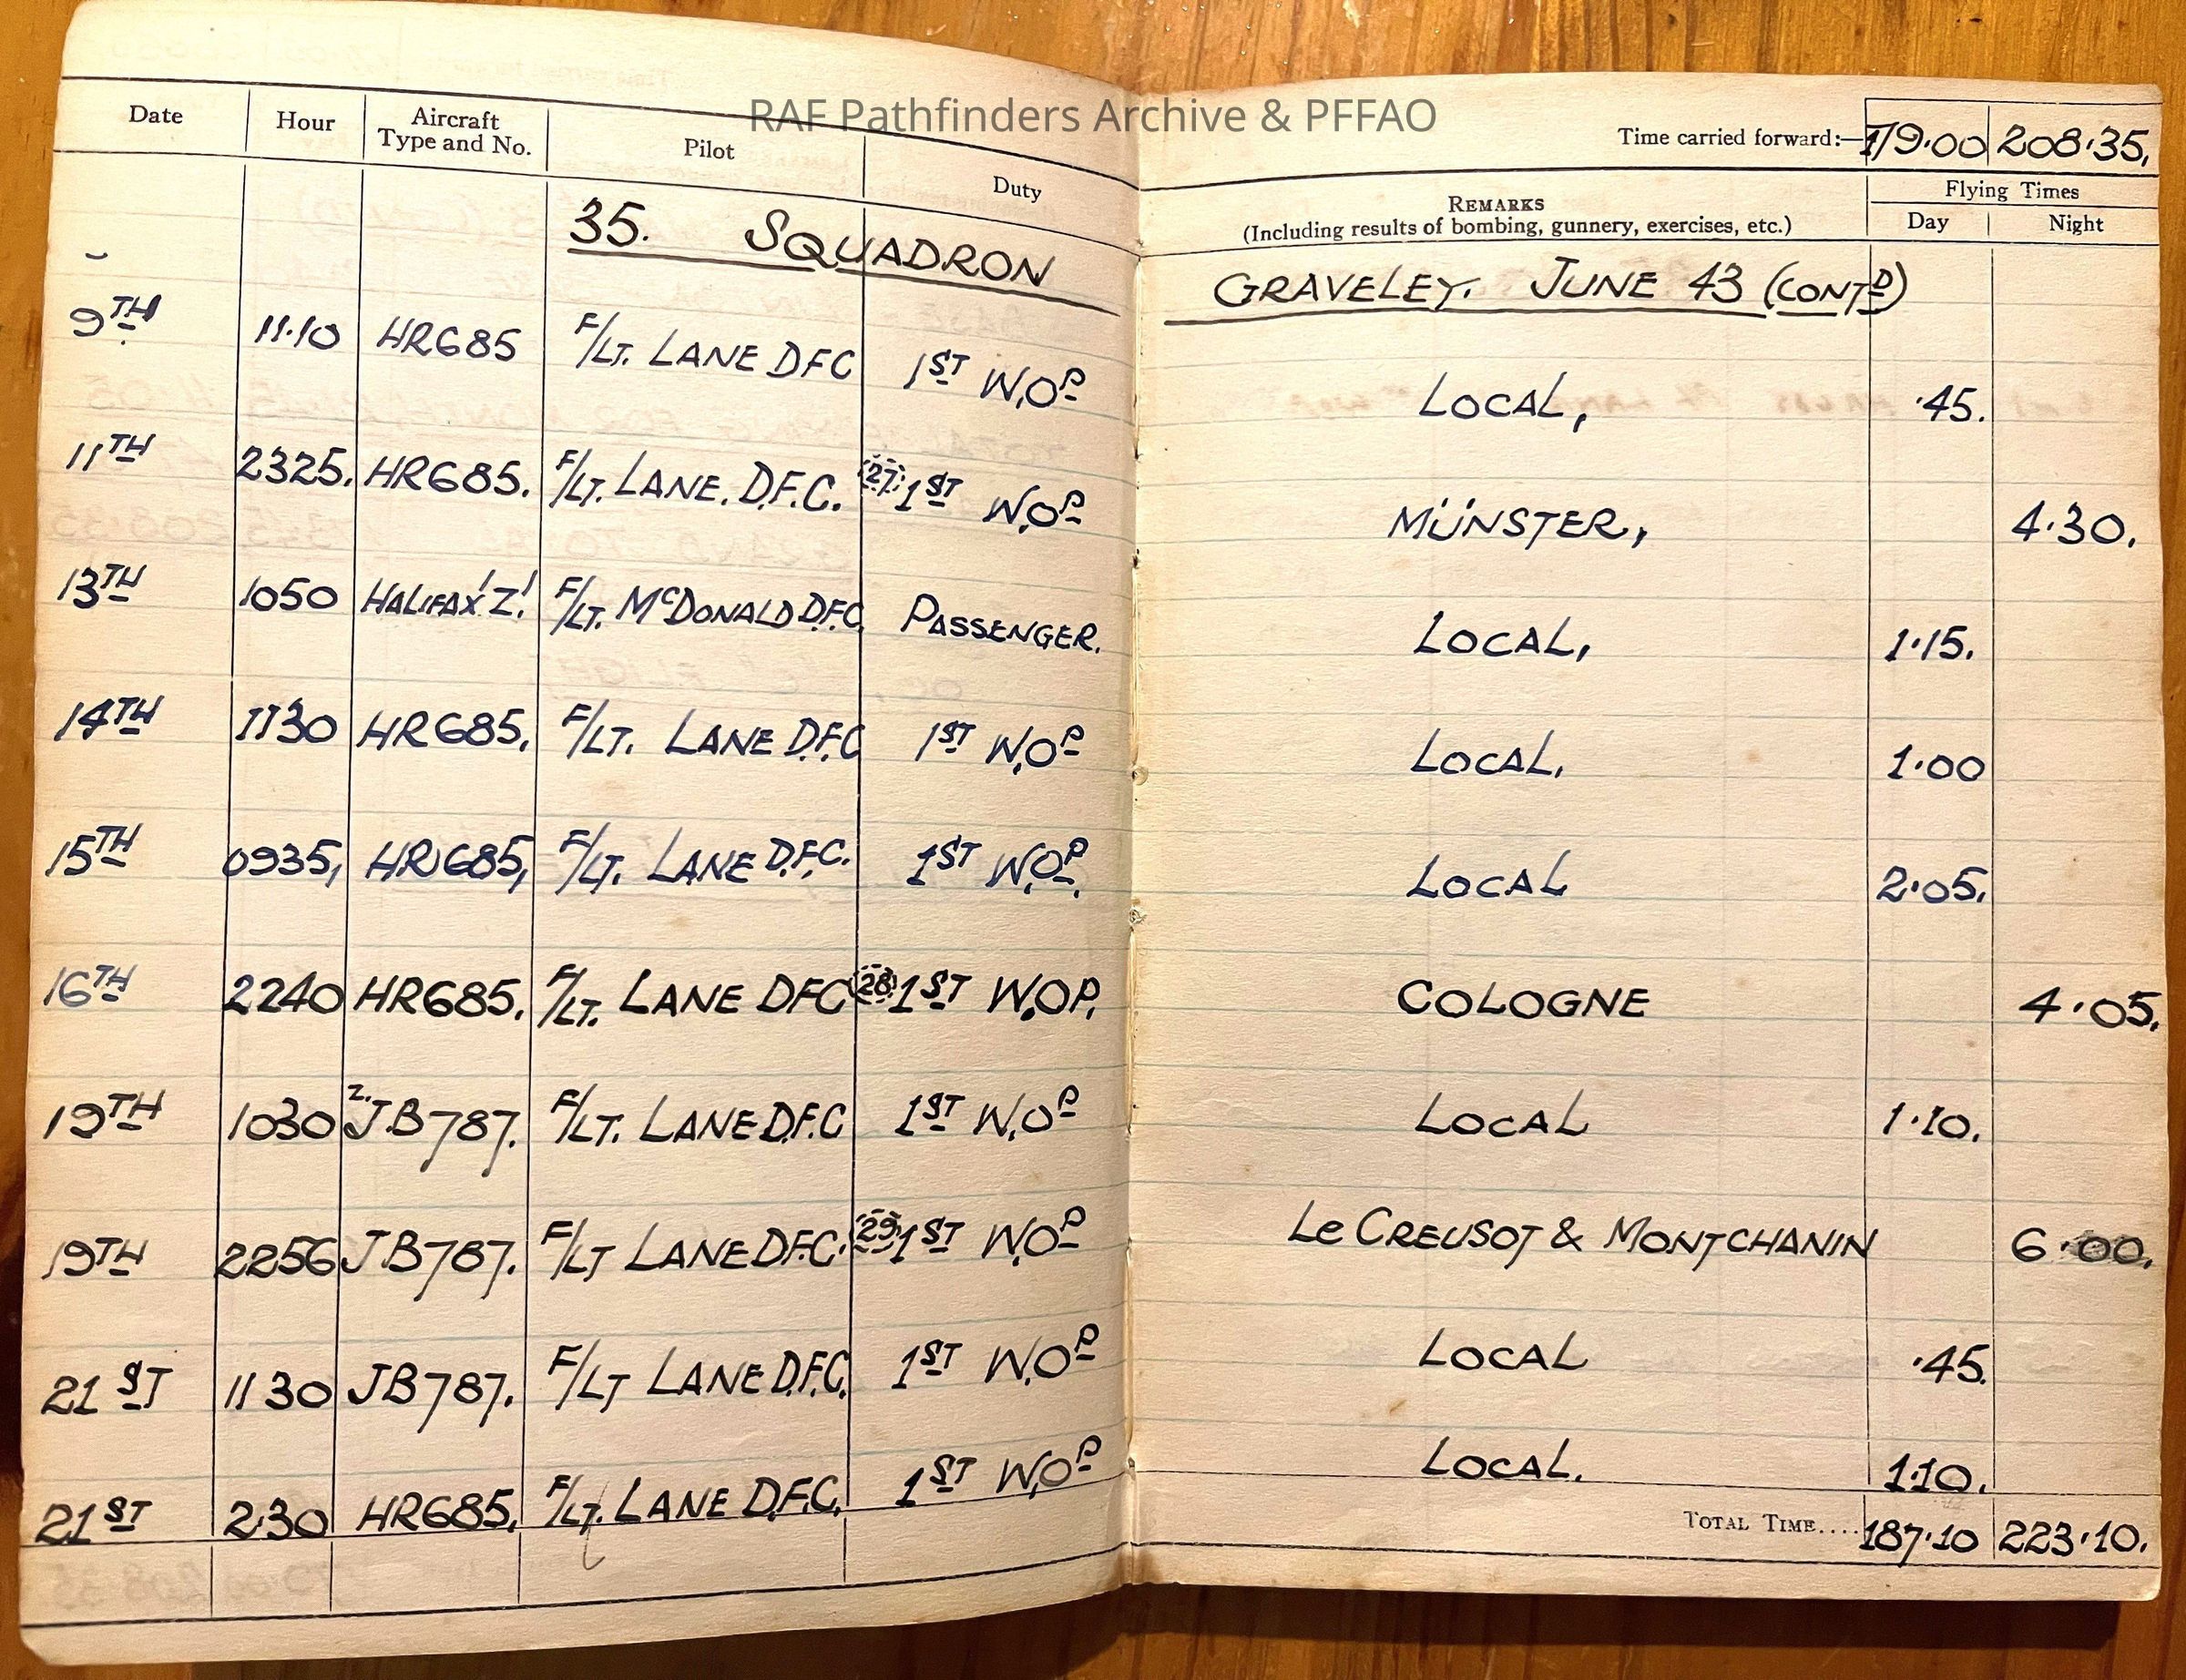 RAF Pathfinders Archive & PFFAO
Date Hour Aircraft Type and No. Pilot Duty
Time carried forward:— 179.00 208.35.
REMARKS
(Including results of bombing, gunnery, exercises, etc.)
Flying Times
Day Night
35. SQUADRON GRAVELEY. JUNE 43 (CONTD)
9TH 11.10 HR685 F/LT. LANE DFC 1ST W.OP LOCAL, .45.
11TH 2325. HR685. F/LT. LANE. D.F.C. (27) 1ST W.OP MÜNSTER, 4.30.
13TH 1050 HALIFAX 'Z'. F/LT. McDONALD D.F.C. PASSENGER. LOCAL, 1.15.
14TH 1130 HR685. F/LT. LANE D.F.C 1ST W.OP LOCAL. 1.00
15TH 0935, HR685, F/LT. LANE D.F.C. 1ST W.OP. LOCAL 2.05.
16TH 2240 HR685. F/LT. LANE DFC (28) 1ST W.OP. COLOGNE 4.05.
19TH 1030 Z. JB787. F/LT. LANE D.F.C 1ST W.OP LOCAL 1.10.
19TH 2256 JB787. F/LT LANE D.F.C. (29) 1ST W.OP Le CREUSOT & MONTCHANIN 6.00.
21ST 1130 JB787. F/LT LANE D.F.C. 1ST W.OP LOCAL .45.
21ST 2.30 HR685. F/LT. LANE D.F.C. 1ST W.OP LOCAL. 1.10.
TOTAL TIME.... 187.10 223.10.